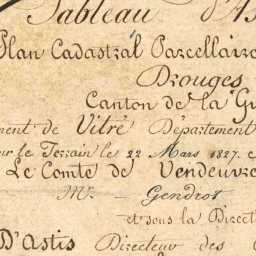 Tableau d'As
Plan Cadastral Parcellaire
Drouges
Canton de la Gu
ment de Vitré Département
sur le Terrain le 22 Mars 1827.
Le Comte de Vendeuvre
Mr. Gendrot
et sous la Direct
D'Astis Directeur des